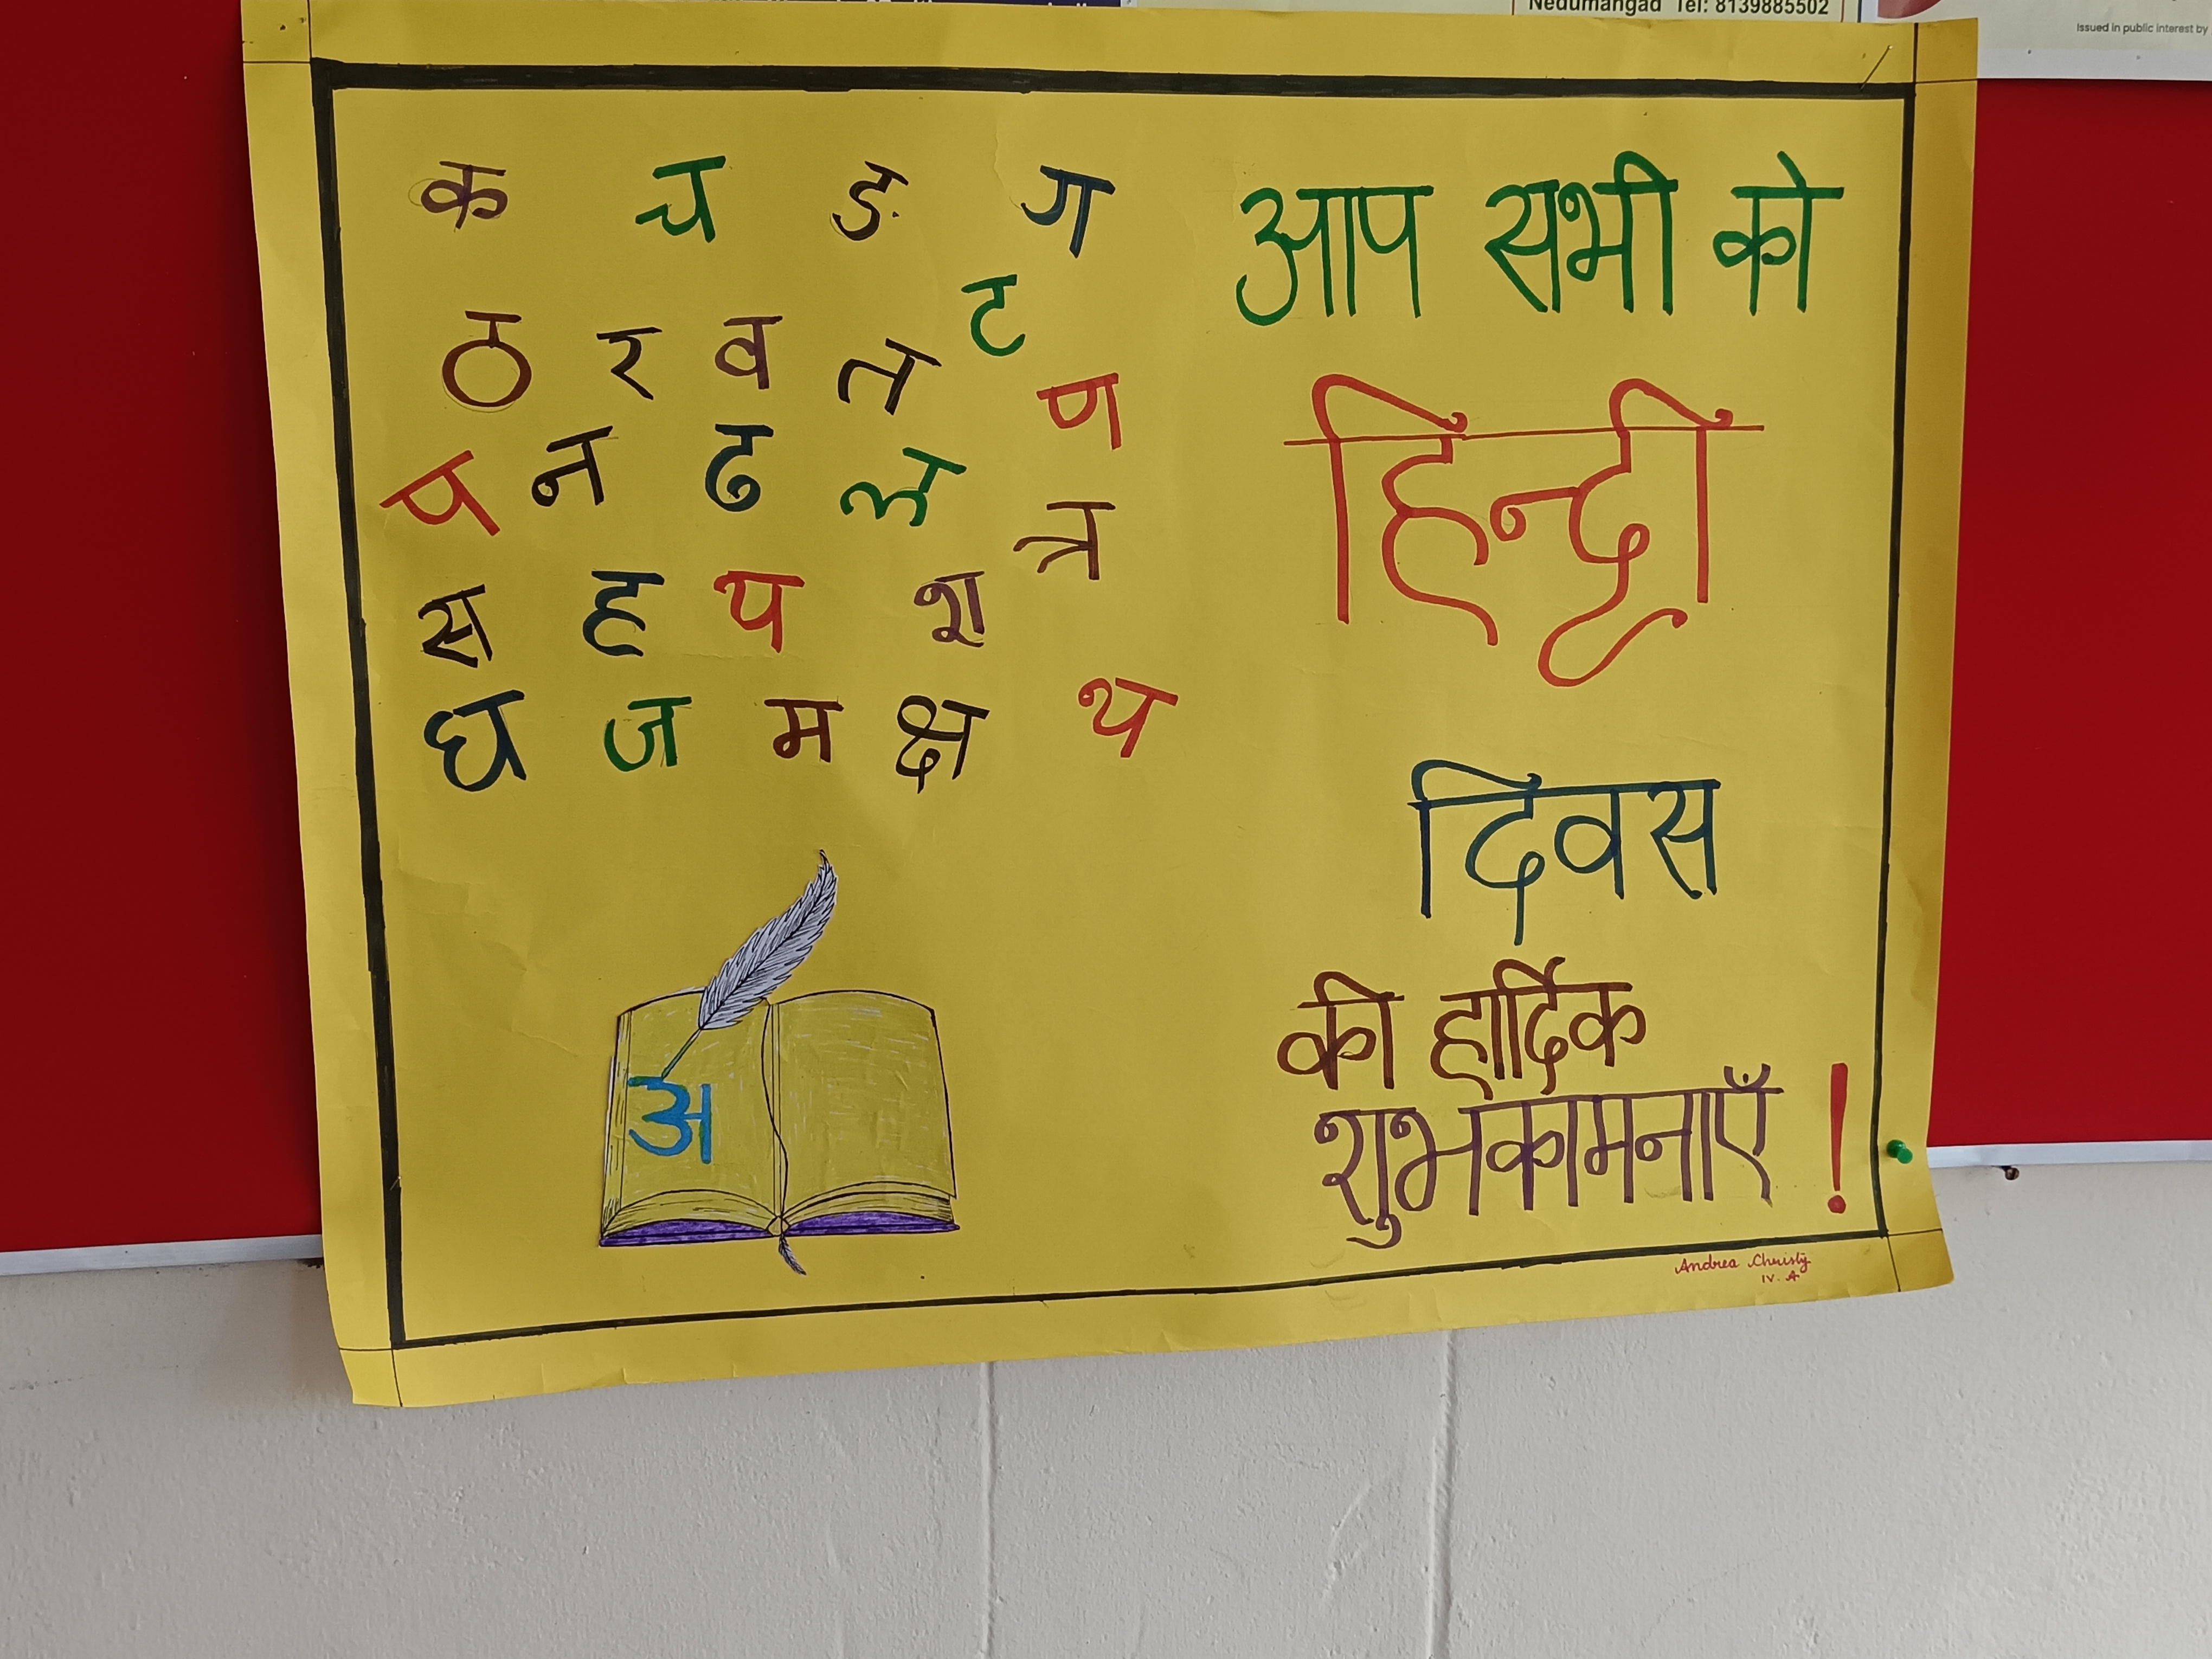 Nedumangad Tel: 8139885502
Issued in public interest by
क च ङ ग
ट
ठ र व त
ण
प न ढ ल
त्र
स ह य श
घ ज म क्ष थ
अ
आप सभी को
हिन्दी
दिवस
की हार्दिक
शुभकामनाएँ !
Andrea Christy
IV. A